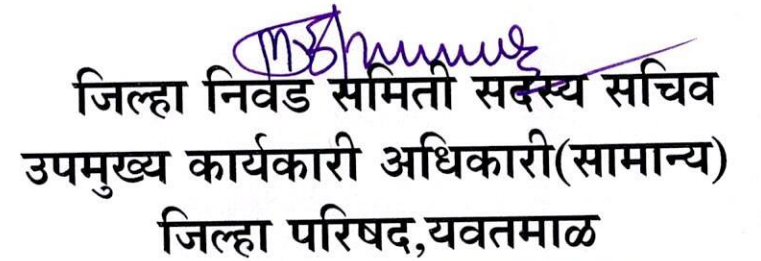 जिल्हा निवड समिती सदस्य सचिव
उपमुख्य कार्यकारी अधिकारी(सामान्य)
जिल्हा परिषद,यवतमाळ